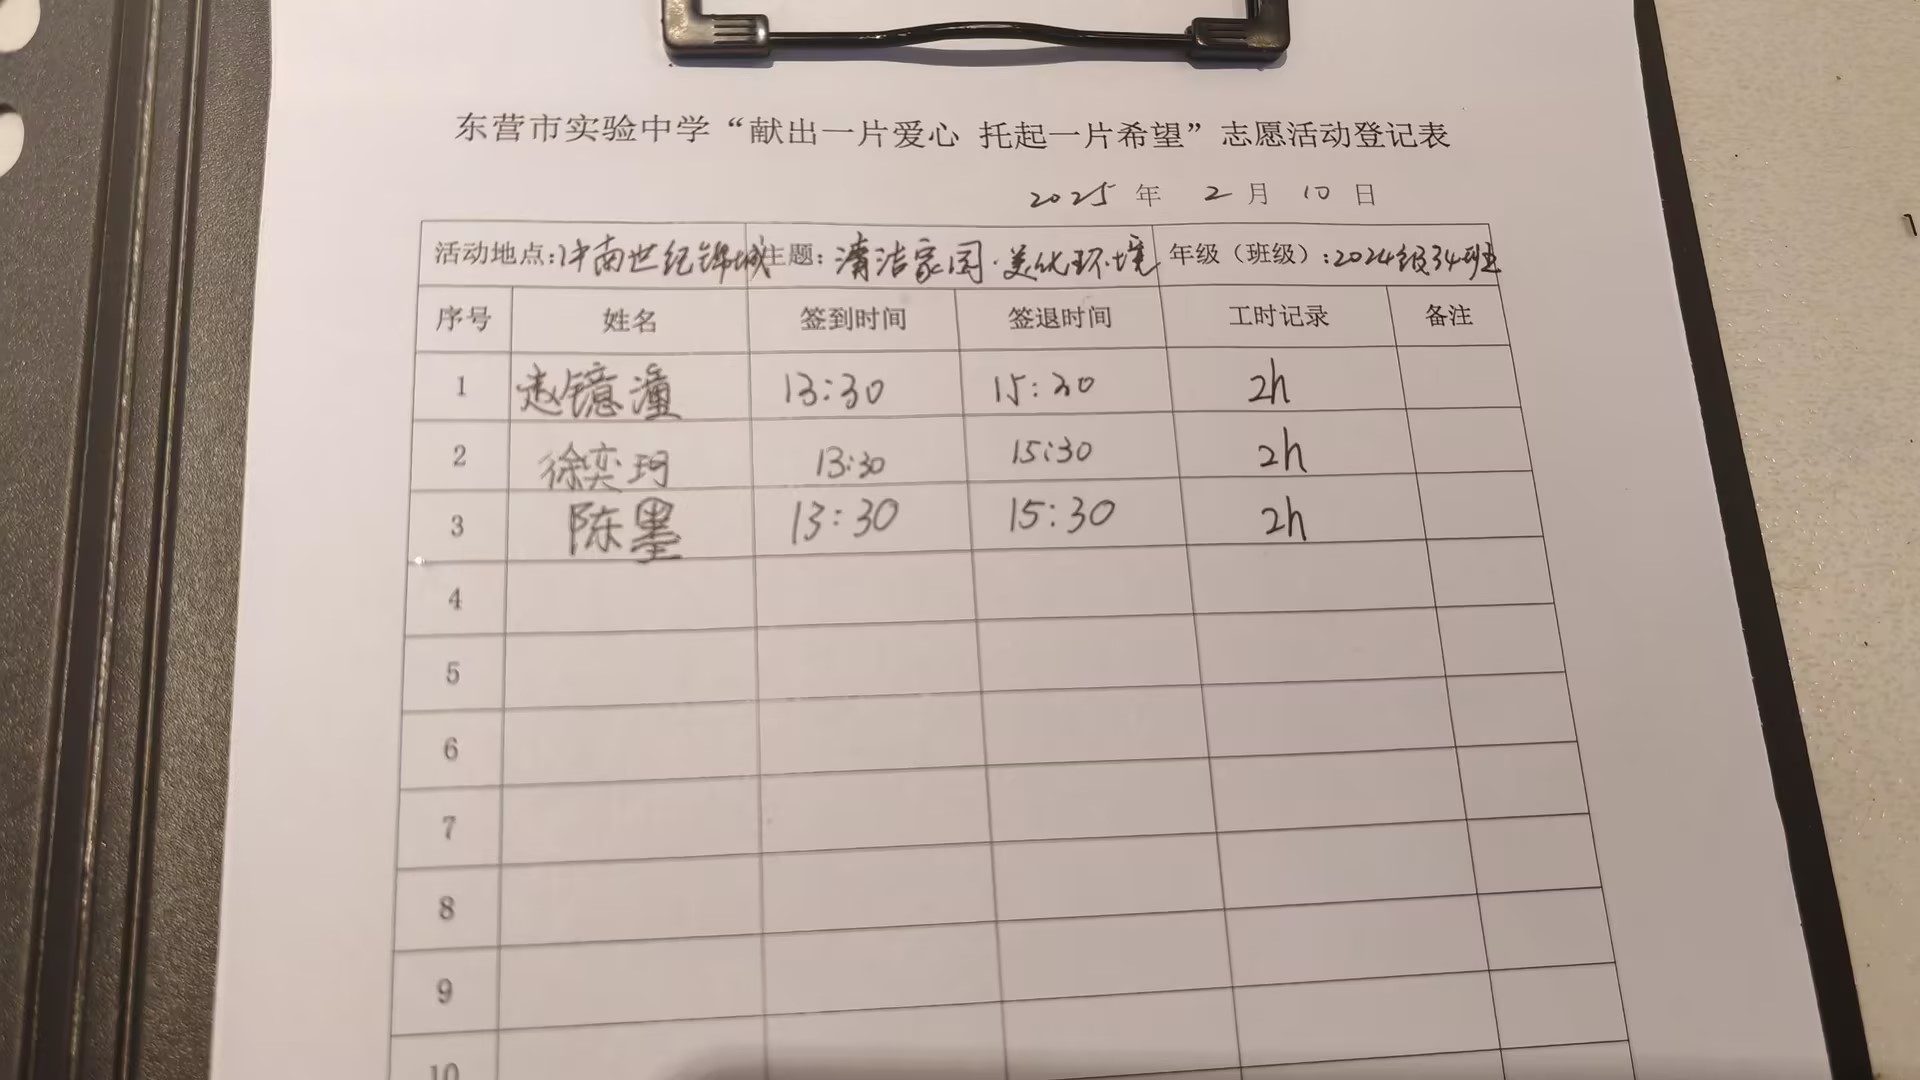 东营市实验中学“献出一片爱心 托起一片希望”志愿活动登记表
2025 年 2 月 10 日
活动地点:沂南世纪锦城 主题: 清洁家园·美化环境 年级（班级）:2024级34班
序号 姓名 签到时间 签退时间 工时记录 备注
1 赵镱潼 13:30 15:30 2h
2 徐奕珂 13:30 15:30 2h
3 陈墨 13:30 15:30 2h
4
5
6
7
8
9
10